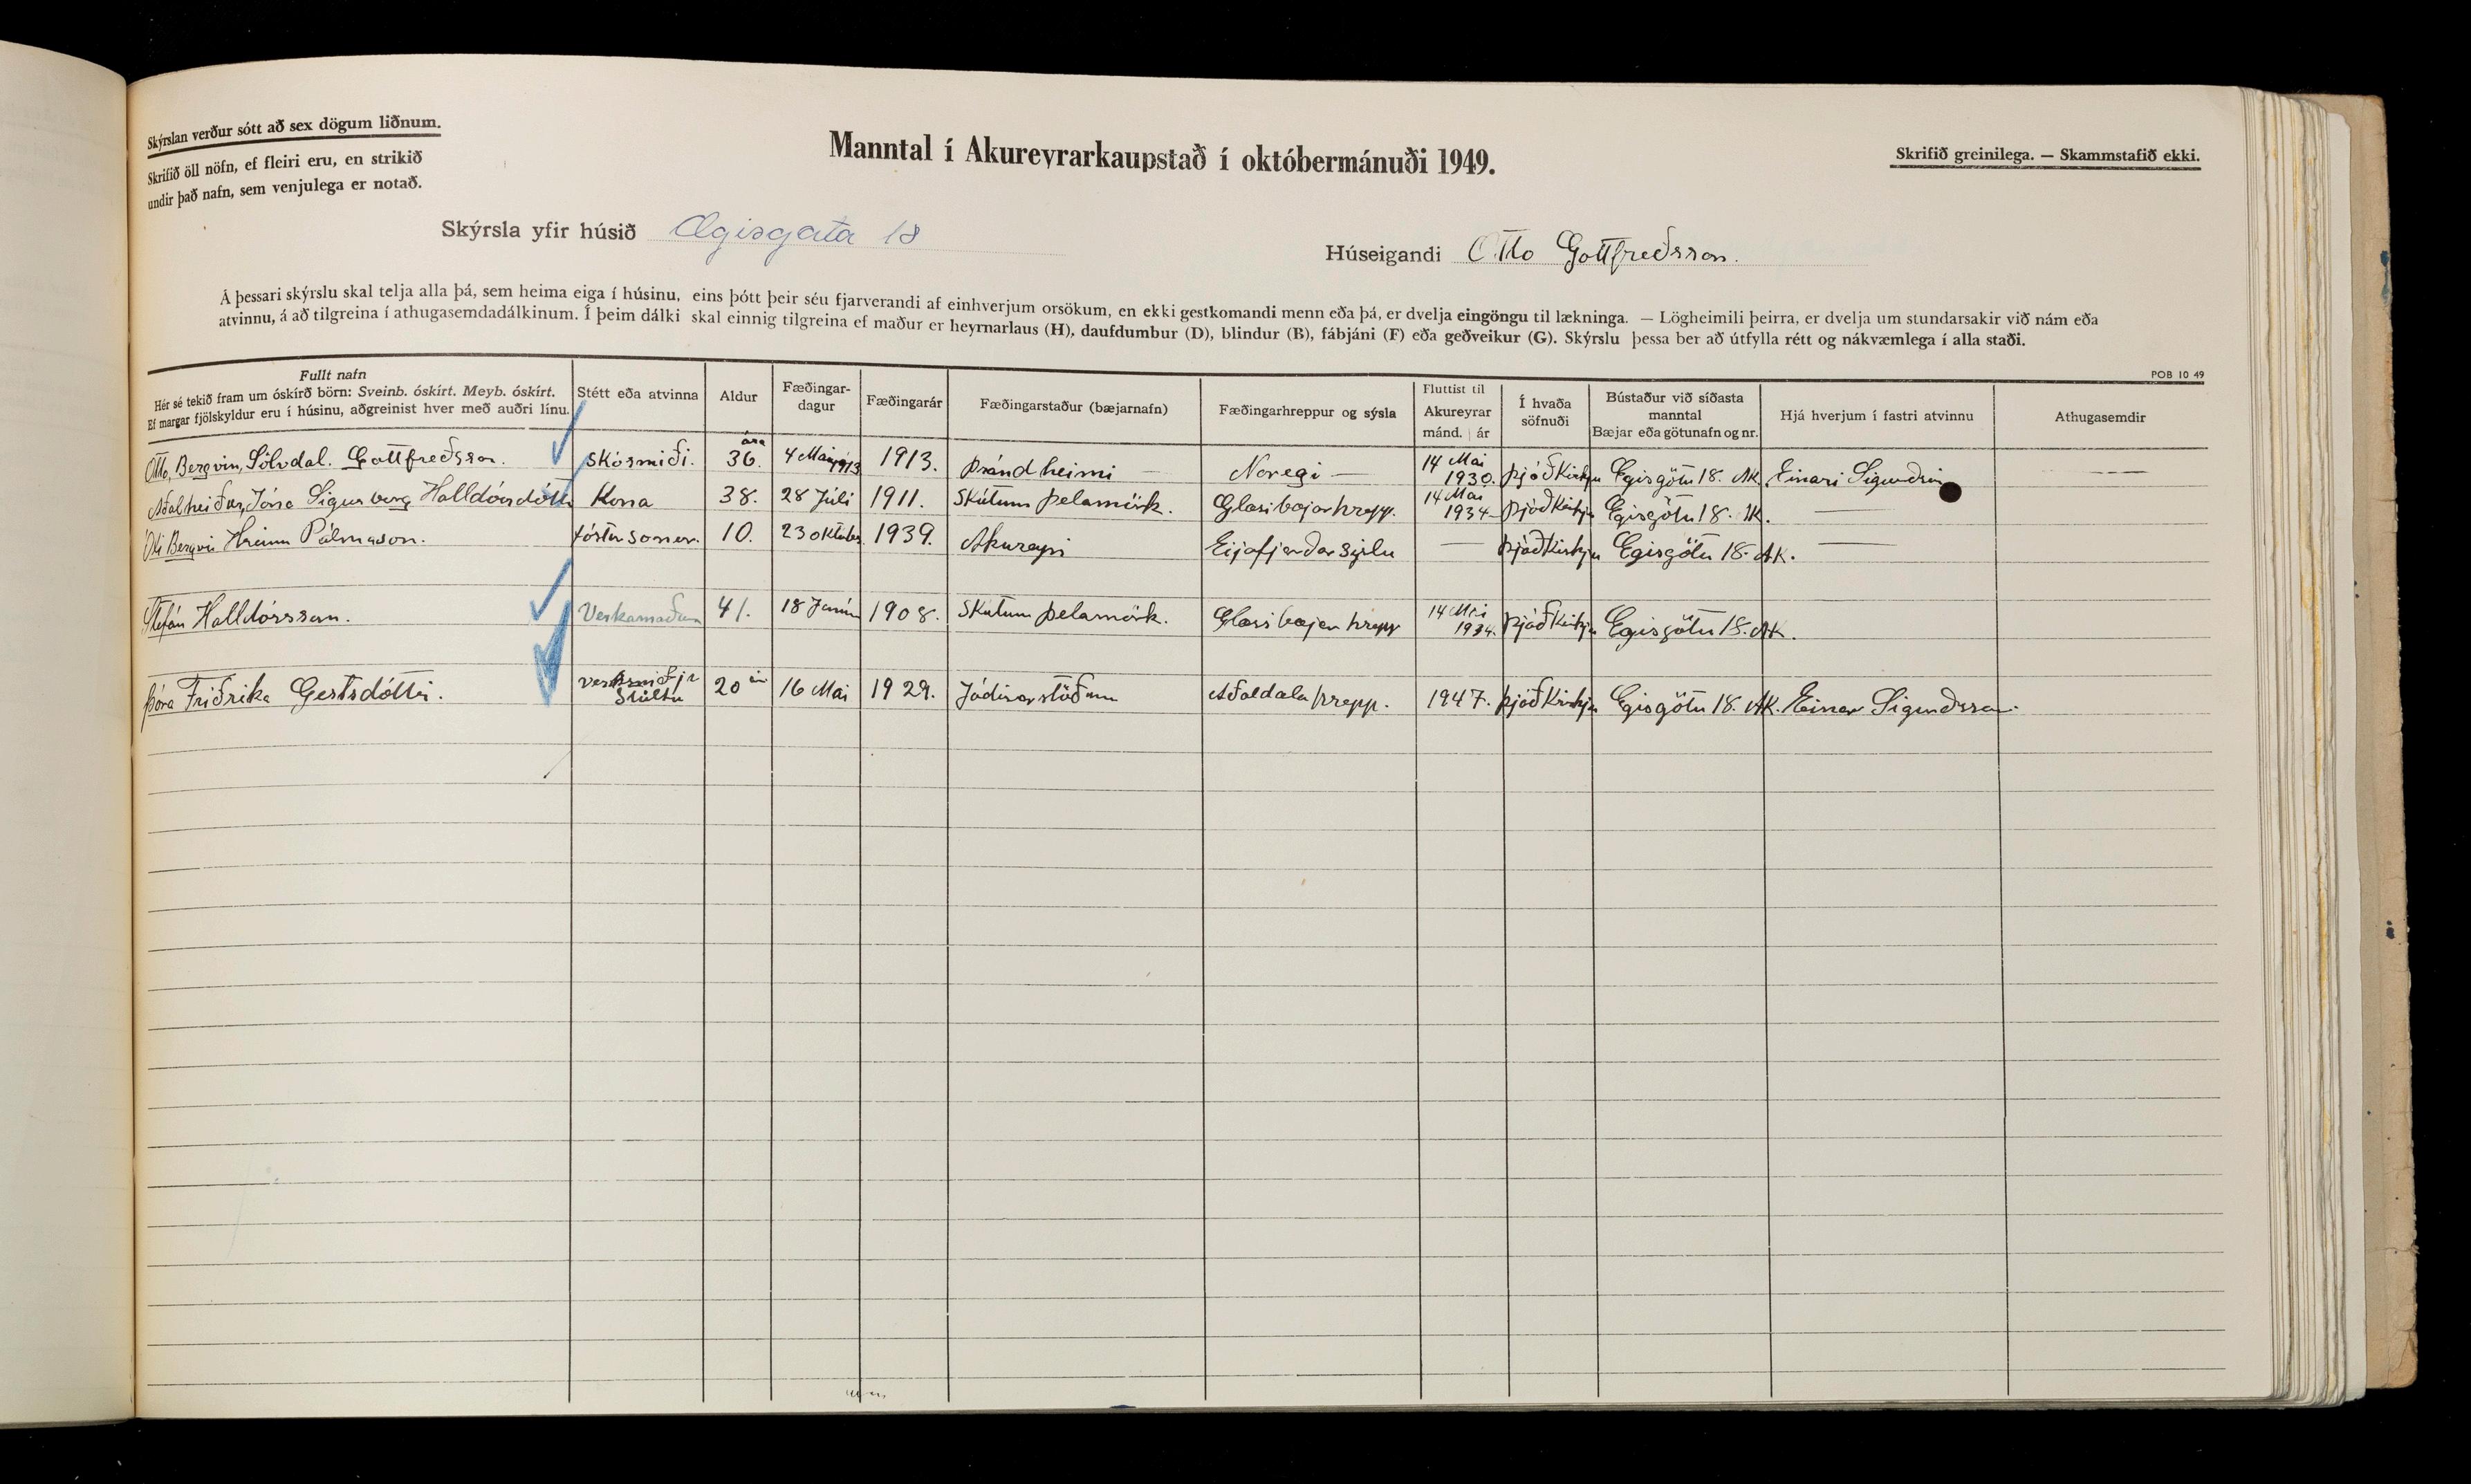 Skýrslan verður sótt að sex dögum liðnum.
Skrifið öll nöfn, ef fleiri eru, en strikið
undir það nafn, sem venjulega er notað.
Manntal í Akureyrarkaupstað í októbermánuði 1949.
Skrifið greinilega. — Skammstafið ekki.
Skýrsla yfir húsið Ægisgata 18
Húseigandi Otto Gottfreðsson.
Á þessari skýrslu skal telja alla þá, sem heima eiga í húsinu, eins þótt þeir séu fjarverandi af einhverjum orsökum, en ekki gestkomandi menn eða þá, er dvelja eingöngu til lækninga. — Lögheimili þeirra, er dvelja um stundarsakir við nám eða
atvinnu, á að tilgreina í athugasemdadálkinum. Í þeim dálki skal einnig tilgreina ef maður er heyrnarlaus (H), daufdumbur (D), blindur (B), fábjáni (F) eða geðveikur (G). Skýrslu þessa ber að útfylla rétt og nákvæmlega í alla staði.
POB 10 49
Fullt nafn
Hér sé tekið fram um óskírð börn: Sveinb. óskírt. Meyb. óskírt.
Ef margar fjölskyldur eru í húsinu, aðgreinist hver með auðri línu.
Stétt eða atvinna
Aldur
Fæðingar-
dagur
Fæðingarár
Fæðingarstaður (bæjarnafn)
Fæðingarhreppur og sýsla
Fluttist til
Akureyrar
mánd. ár
Í hvaða
söfnuði
Bústaður við síðasta
manntal
Bæjar eða götunafn og nr.
Hjá hverjum í fastri atvinnu
Athugasemdir
Otto, Bergvin, Sölvdal. Gottfreðsson. skósmiði. 36. ára 4 Mai 1913 1913. Þrándheimi — Noregi — 14 Mai 1930. þjóðkirkju Egisgötu 18. AK. Einari Sigurðssyni
Aðalheiður, Jóna Sigurborg Halldórsdóttir Kona 38. 28 Júli 1911. Skútum þelamörk. Glæsibæjarhrepp. 14 Mai 1934 þjóðkirkju Egisgötu 18. AK. —
Bergvin Hreinn Pálmason. fóstursonur. 10. 23 október 1939. Akureyri Eyjafjarðarsýslu — þjóðkirkju Egisgötu 18. AK. —
Stefán Halldórsson. Verkamaður 41. 18 Janúar 1908. Skútum þelamörk. Glæsibæjar hrepp 14 Mai 1934. þjóðkirkju Egisgötu 18. AK.
Þóra Friðrika Gestsdóttir. verksmiðju Stúlku 20 16 Mai 1929. Jódísarstöðum Aðaldælahrepp. 1947. þjóðkirkju Egisgötu 18. AK. Einar Sigurðsson.